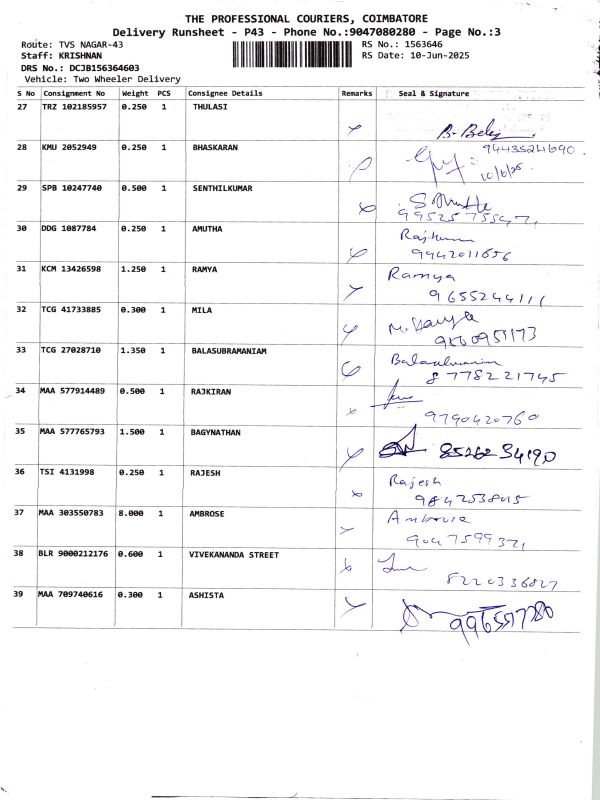 THE PROFESSIONAL COURIERS, COIMBATORE
Delivery Runsheet - P43 - Phone No.:9047080280 - Page No.:3
Route: TVS NAGAR-43 RS No.: 1563646
Staff: KRISHNAN RS Date: 10-Jun-2025
DRS No.: DCJB156364603
Vehicle: Two Wheeler Delivery
S No Consignment No Weight PCS Consignee Details Remarks Seal & Signature
27 TRZ 102185957 0.250 1 THULASI
28 KMU 2052949 0.250 1 BHASKARAN
10/6/25
29 SPB 10247740 0.500 1 SENTHILKUMAR
30 DDG 1087784 0.250 1 AMUTHA
9942011656
31 KCM 13426598 1.250 1 RAMYA Ramya
9655244111
32 TCG 41733885 0.300 1 MILA
33 TCG 27028710 1.350 1 BALASUBRAMANIAM
8778221745
34 MAA 577914489 0.500 1 RAJKIRAN
9790420760
35 MAA 577765793 1.500 1 BAGYNATHAN
36 TSI 4131998 0.250 1 RAJESH Rajesh
37 MAA 303550783 8.000 1 AMBROSE
38 BLR 9000212176 0.600 1 VIVEKANANDA STREET
8220336827
39 MAA 709740616 0.300 1 ASHISTA